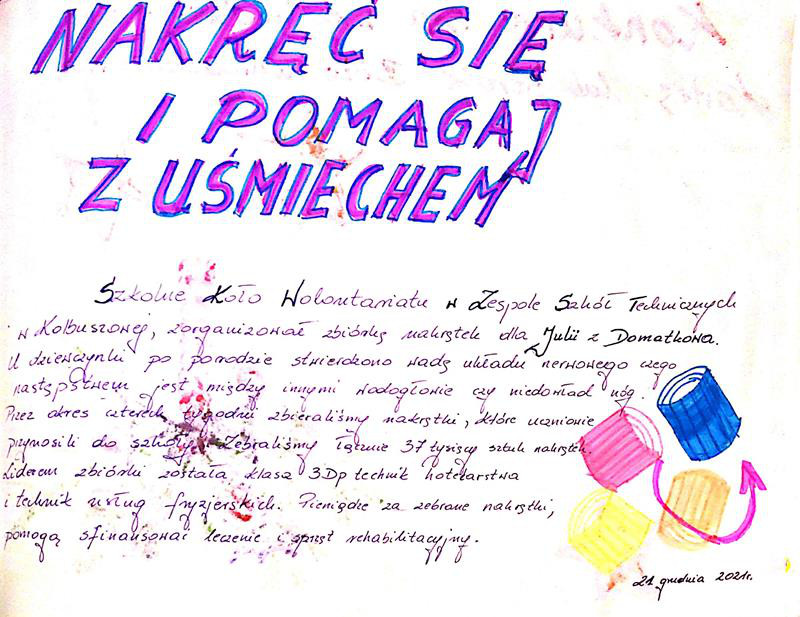 NAKRĘĆ SIĘ
I POMAGAJ
Z UŚMIECHEM
Szkolne Koło Wolontariatu w Zespole Szkół Technicznych
w Kolbuszowej, zorganizował zbiórkę nakrętek dla Julii z Domatkowa.
U dziewczynki po porodzie stwierdzono wadę układu nerwowego czego
następstwem jest między innymi wodogłowie czy niedowład nóg.
Przez okres czterech tygodni zbieraliśmy nakrętki, które uczniowie
przynosili do szkoły. Zebraliśmy łącznie 37 tysięcy sztuk nakrętek.
Liderem zbiórki została klasa 3Dp technik hotelarstwa
i technik usług fryzjerskich. Pieniądze za zebrane nakrętki,
pomogą sfinansować leczenie i sprzęt rehabilitacyjny.
21 grudnia 2021r.